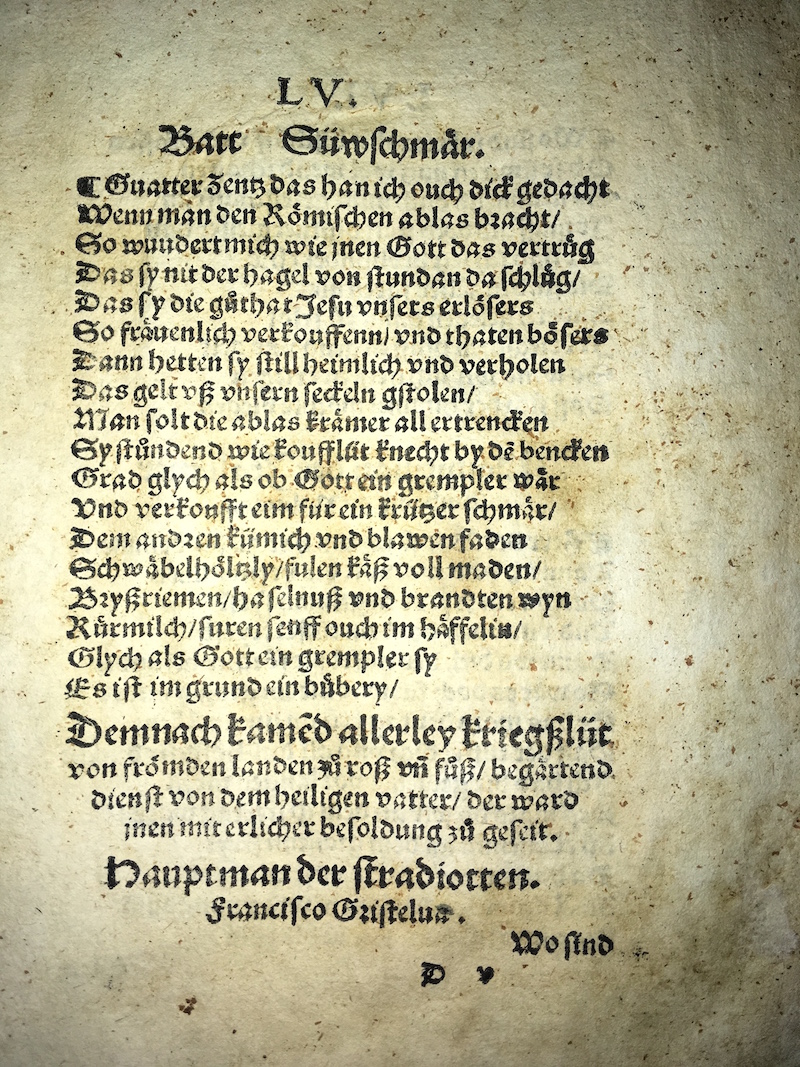 LV.
Batt Süwschmår.
¶ Guatter Zentz das han ich ouch dick gedacht
Wenn man den Römischen ablas bracht/
So wundert mich wie jnen Gott das vertrůg
Das sy nit der hagel von stundan da schlůg/
Das sy die gůthat Jesu vnsers erlösers
So fräuenlich verkouffenn/ vnd thaten bösers
Dann hetten sy still heimlich vnd verholen
Das gelt vß vnsern seckeln gstolen/
Man solt die ablas krämer all ertrencken
Sy stůndend wie koufflüt knecht by dē bencken
Grad glych als ob Gott ein grempler wår
Vnd verkoufft eim für ein krützer schmår/
Dem andren kümich vnd blawen faden
Schwåbelhöltzly/fulen kåß voll maden/
Bryßriemen/haselnuß vnd brandten wyn
Rürmilch/suren senff ouch im håffelin/
Glych als Gott ein grempler sy
Es ist im grund ein bůbery/
Demnach kamēd allerley kriegßlüt
von frömden landen zů roß vñ fůß/ begårtend
dienst von dem heiligen vatter/ der ward
jnen mit erlicher besoldung zů geseit.
Hauptman der stradiotten.
Francisco Gristelua.
Wo sind
D v